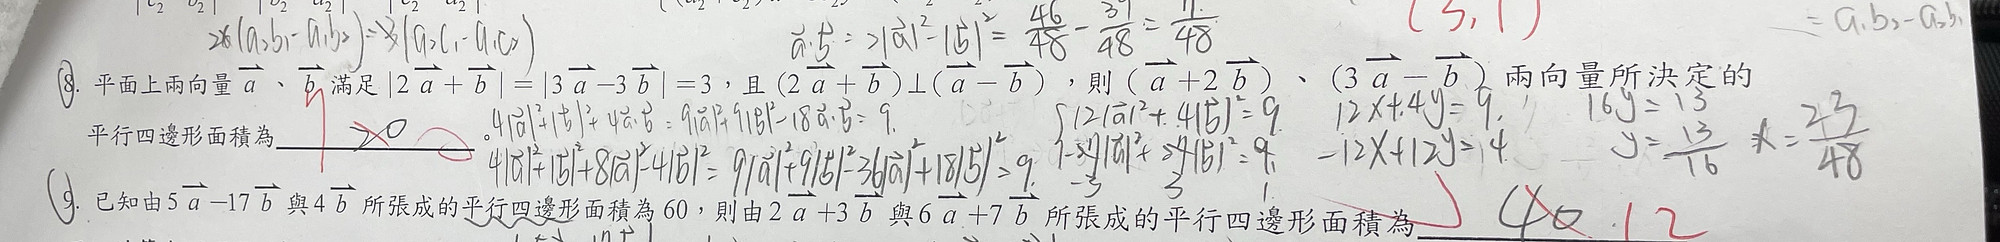 26(a₂b₁-a₁b₂)=3(a₂c₁-a₁c₂)
a·b = 2|a|²-|b|² = 46/48 - 39/48 = 7/48
(3,1)
= a₁b₂-a₂b₁
8. 平面上兩向量 a 、 b 滿足 |2a+b|=|3a-3b|=3,且 (2a+b)⊥(a-b) ,則 (a+2b) 、 (3a-b) 兩向量所決定的
平行四邊形面積為 20 9
4|a|²+|b|²+4a·b = 9|a|²+9|b|²-18a·b = 9
4|a|²+|b|²+8|a|²-4|b|² = 9|a|²+9|b|²-36|a|²+18|b|² = 9
12|a|²+4|b|²=9
-27|a|²+27|b|²=9
-3 3 1
12x+4y=9
-12x+12y=4
16y=13
y=13/16 x=23/48
9. 已知由 5a-17b 與 4b 所張成的平行四邊形面積為 60,則由 2a+3b 與 6a+7b 所張成的平行四邊形面積為 40 12